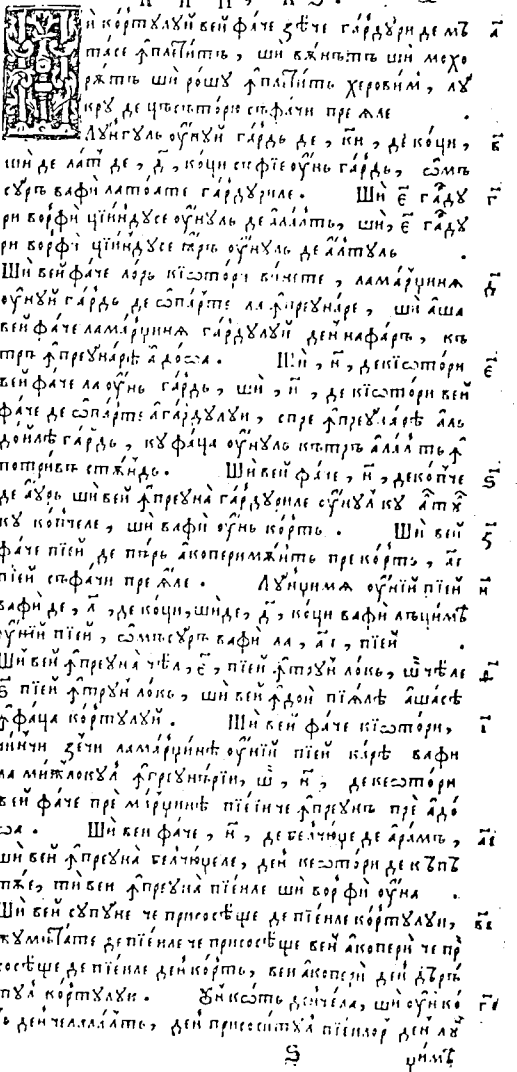 Шѝ кортꙋлꙋй вей фаче зѣче гардꙋри де мъ а҃
тасе ꙟплетитъ, ши вънътъ ши мохо
рѫтъ шѝ рошꙋ ꙟплетить херовимй, лꙋ
крꙋ де цъсъторю съ фачи пре ѧле.
Лꙋнгꙋль ꙋнꙋй гардь де, к҃и, де коци, в҃
ши де лат де, д҃, коци съ фїе ꙋнь гардь, ѡ мъ
сꙋръ ва фи ла тоате гардꙋриле. Шѝ е҃ гардꙋ г҃
ри ворь фѝ цїиндꙋсе ꙋнꙋль де алалть, ши, е҃ гардꙋ
ри ворь фѝ цїиндꙋсе ꙗръ ꙋнꙋль де алтꙋль.
Ши вей фаче лорь кїѡтори вънете, ла марџинѧ д҃
ꙋнꙋй гардь де ѡ парте ла ꙟпреꙋнаре, ши аша
вей фаче ла марџинѧ гардꙋлꙋй ден афаръ, къ
тръ ꙟпреꙋнарѣ а доѡа. Шѝ, н҃, де кїѡтори е҃
вей фаче ла ꙋнь гардь, шѝ, н҃, де кїѡтори вей
фаче де ѡ парте а гардꙋлꙋи, спре ꙟпреꙋнарѣ аль
дойлѣ гардь, кꙋ фаца ꙋнꙋль кътръ алалть ꙟ
потривъ стѫндь. Ши вей фаче, н҃, де копче ѕ҃
де аꙋрь ши вей ꙟпреꙋна гардꙋриле ꙋнꙋл кꙋ алт
кꙋ копчеле, ши ва фи ꙋнь корть. Ши вей з҃
фаче пїей де пърь а коперимѫнть пре корть, а҃і
пїей съ фачи пре ѧле. Лꙋнџимѧ ꙋнїй пїей и҃
ва фи де, л҃, де коци, ши де, д҃, коци ва фи лъцимѣ
ꙋнїй пїей, ѡ мъсꙋръ ва фи ла, а҃і, пїей.
Ши вей ꙟпреꙋна чѣле, е҃, пїей ꙟтрꙋн локь, ши чѣле ѳ҃
ѕ҃ пїей ꙟтрꙋн локь, ши вей ꙟдои пїѧлѣ а шасѣ
ꙟ фаца кортꙋлꙋй. Ши вей фаче кїѡтори, і҃
чинчи зечи ла марџинѣ ꙋнїй пїей каре ва фи
ла мижлокꙋл ꙟпреꙋнърїи, ши, н҃, де кеѡтори
вей фаче пре марџинѣ пїеїи че ꙟпреꙋнъ пре а до
ѡа. Ши вей фаче, н҃, де белчꙋџе де арамъ, а҃і
ши вей ꙟпреꙋна белчꙋџеле, ден кеѡтори де къпъ
тѫе, ши вей ꙟпреꙋна пїеиле ши ворь фи ꙋна.
Ши вей сꙋпꙋне че присосѣще де пїеиле кортꙋлꙋи, в҃і
жꙋмътате де пїеиле че присосѣще вей акопери че при
сосѣще де пїеиле ден корть, вей акопери ден дъръ
пꙋл кортꙋлꙋи. Ꙋн коть ден чела, ши ꙋн ко г҃і
ть ден челлалалть, ден присоситꙋл пїеилор ден лꙋ
ѕ҃ нџимѣ